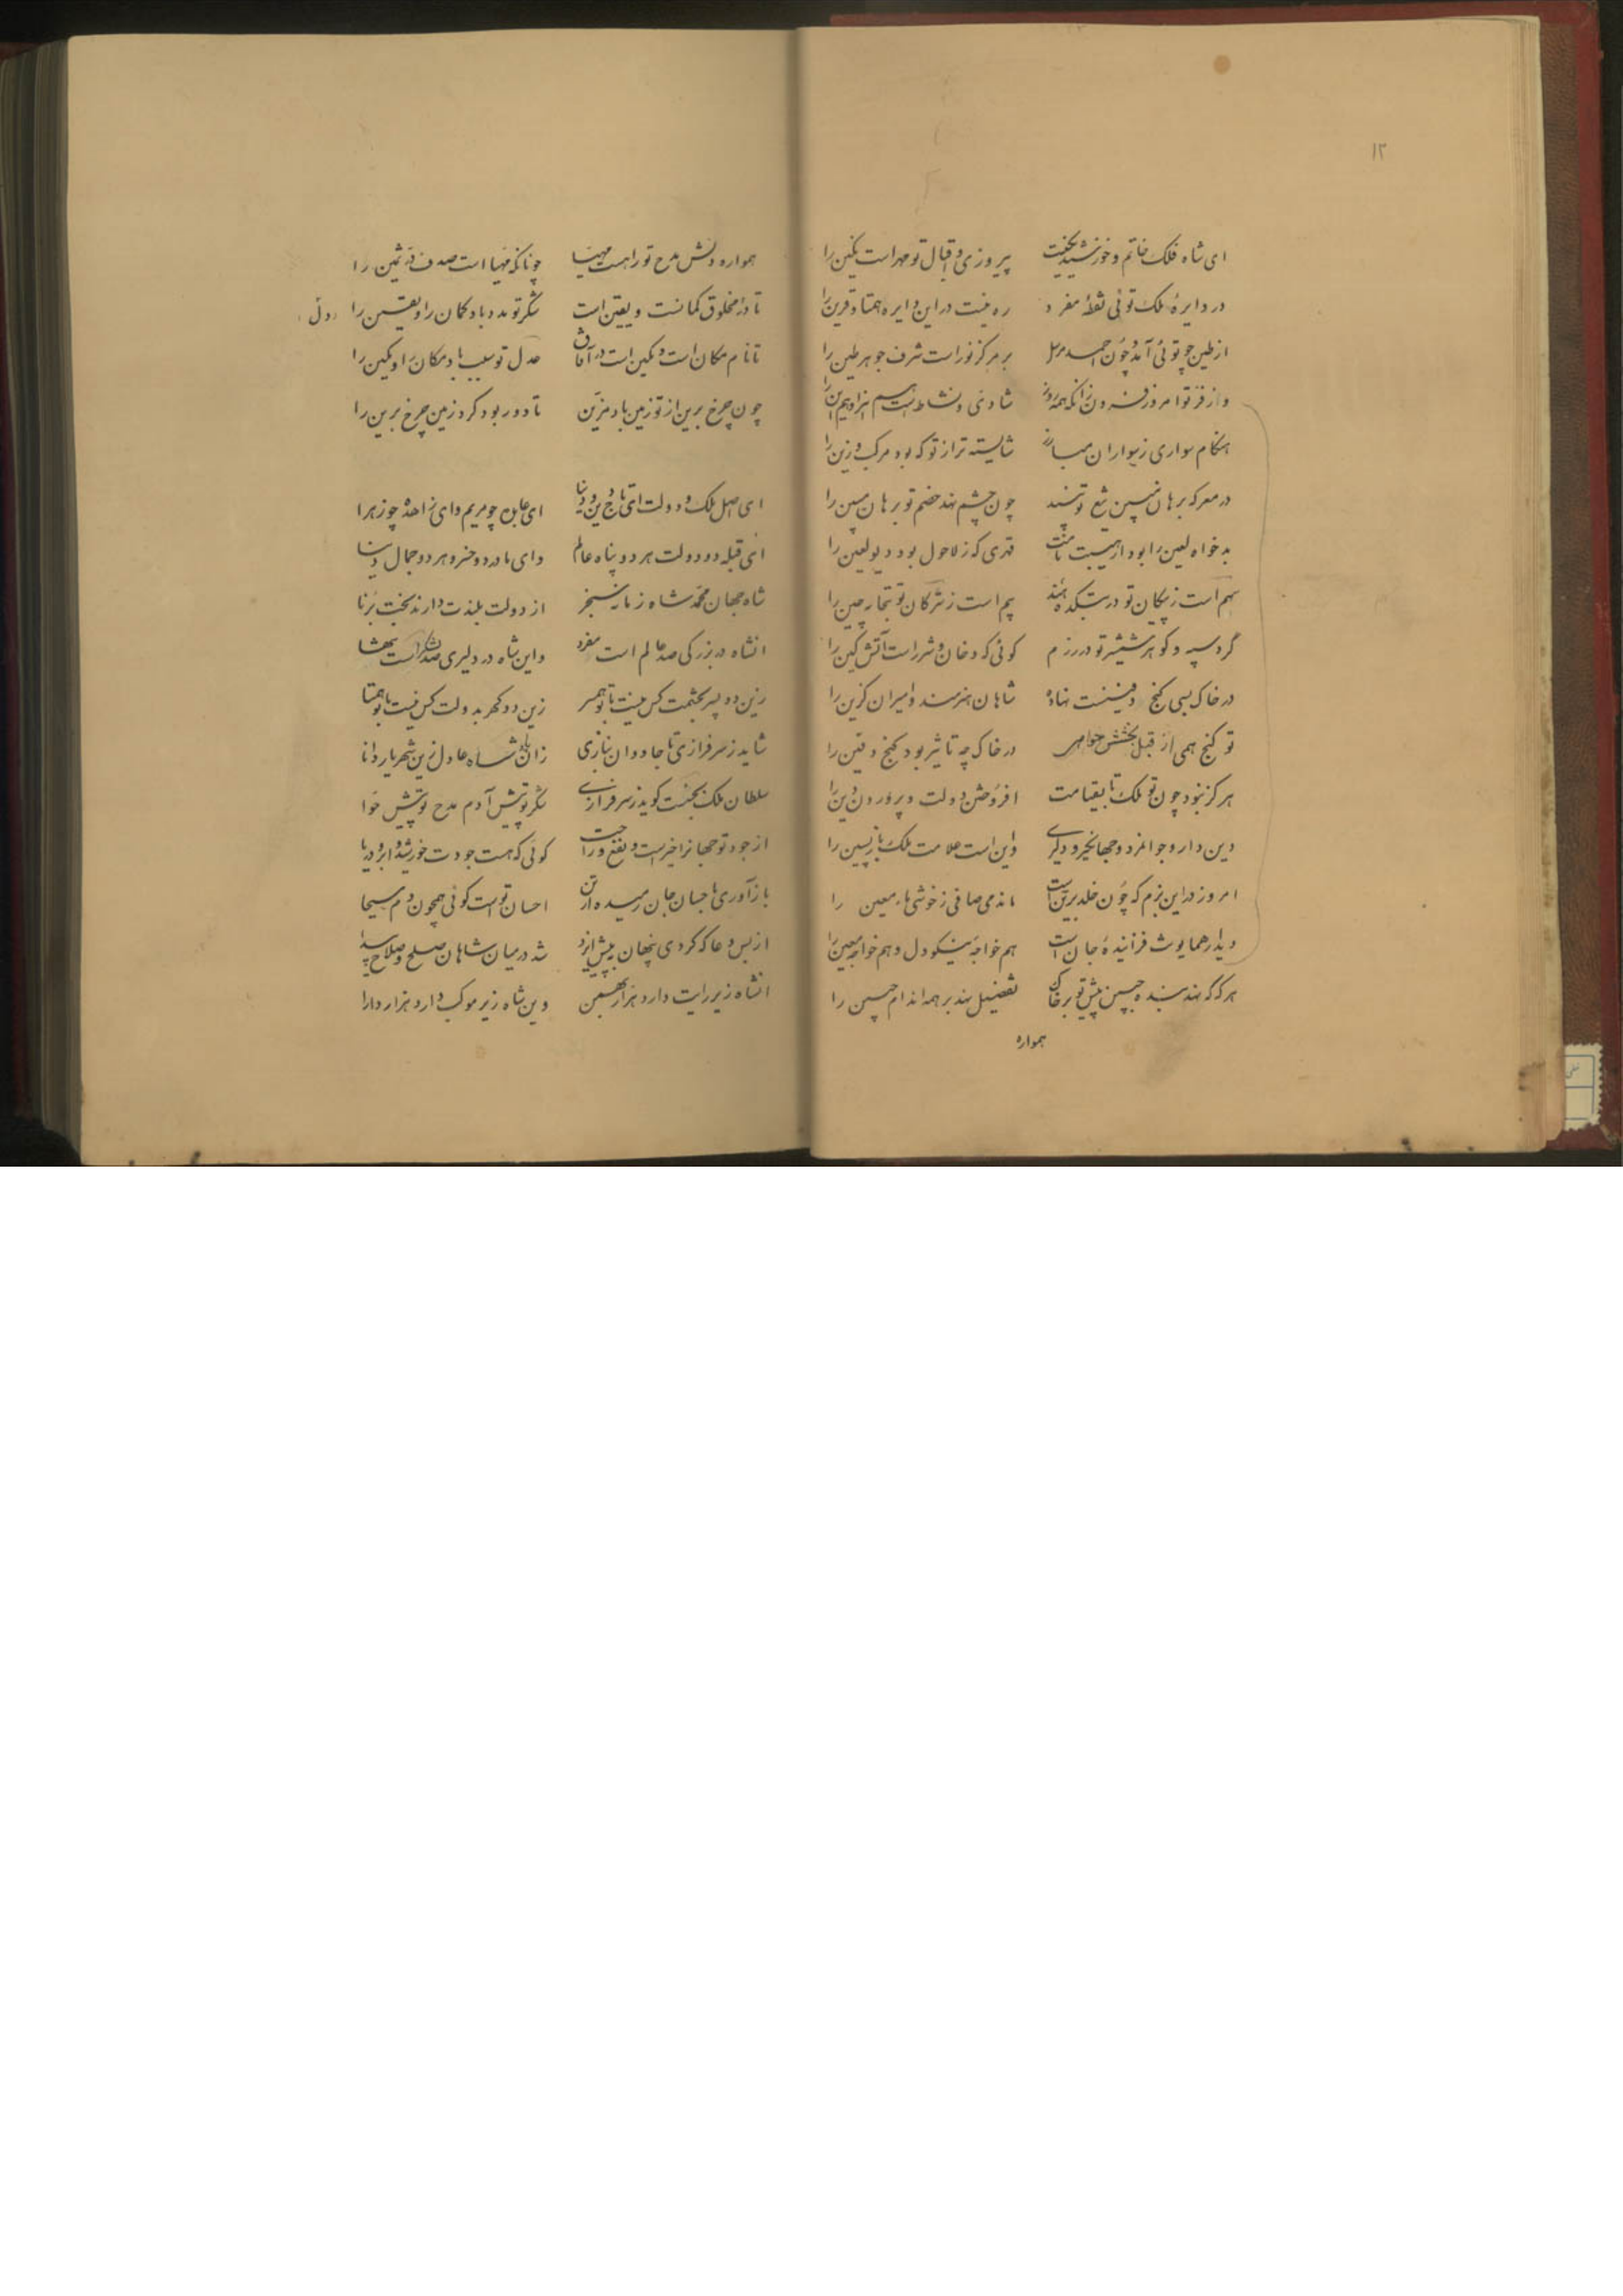 ۱۲
ای شاه فلک خاتم و خورشید نگینت پیروزی و اقبال تو مهر است نگین را
در دایرهٔ ملک توئی نقطهٔ مفرد ره نیست در این دایره همتا و قرین را
از طین چو توئی آمد و چون احمد مرسل بر مرکز نور است شرف جوهر طین را
واز فر تو امروز فزون زانکه همه روز شادی و نشاط است هم آنرا و هم این را
هنگام سواری ز سواران مبارز شایسته‌تر از تو که بود مرکب و زین را
در معرکه برهان مبین تیغ تو بیند چون چشم نهد خصم تو برهان مبین را
بدخواه لعین را بود از هیبت نامت قهری که ز لاحول بود دیو لعین را
سهم است ز پیکان تو در بتکده هند بیم است ز ترکان تو بتخانه چین را
گرد سپه و گوهر شمشیر تو در رزم گوئی که دخان و شرر است آتش کین را
در خاک بسی گنج دفینست نهاده شاهان هنرمند و امیران گزین را
تو گنج همی از قبل بخشش خواهی در خاک چه تاثیر بود گنج دفین را
هرگز نبود چون تو ملک تا بقیامت افروختن دولت و پروردن دین را
دین‌دار و جوانمرد و جهانگیر و دلیری واین است علامت ملک بازپسین را
امروز در این بزم که چون خلد برین است ماند می صافی ز خوشی ماء معین را
دیدار همایونت فزاینده جان است هم خواجه نیکودل و هم خواجه معین را
هرگه که نهد بنده جبین پیش تو بر خاک تفضیل نهد بر همه اندام جبین را
همواره
همواره دلش مدح تو را هست مهیا چونانکه مهیا است صدف در ثمین را
تا در مخلوق گمانست و یقین است شکر تو مدد باد گمان را و یقین را دل
تا نام مکان است و مکین است در آفاق عدل تو سبب باد مکان را و مکین را
چون چرخ برین از تو زمین باد مزین تا دور بود گرد زمین چرخ برین را
ای اصل ملک و دولت ای تاج دین و دنیا ای عابده چو مریم وای زاهده چو زهرا
ای قبله دو دولت هر دو پناه عالم وای مادر دو خسرو هر دو جمال دنیا
شاه جهان محمد شاه زمانه سنجر از دولت بلندت دارند بخت برنا
انشاه در بزرگی صد عالم است مفرد واین شاه در دلیری صد لشکر است تنها
زین دو پسر بحشمت کس نیست با تو همسر زین دو گهر بدولت کس نیست با تو همتا
شاید ز سرفرازی تا جاودان بنازی زان پادشاه عادل زین شهریار دانا
سلطان ملک بجنت گوید ز سرفرازی شکر تو پیش آدم مدح تو پیش حوا
از جود تو جهانرا خیر است و نفع و راحت گوئی که هست جودت خورشید و ابر و دریا
باز آوری باحسان جان رمیده از تن احسان تو است گوئی همچون دم مسیحا
از بس دعا که کردی پنهان به پیش ایزد شد در میان شاهان صلح و صلاح پیدا
انشاه زیر رایت دارد هزار بهمن وین شاه زیر موکب دارد هزار دارا